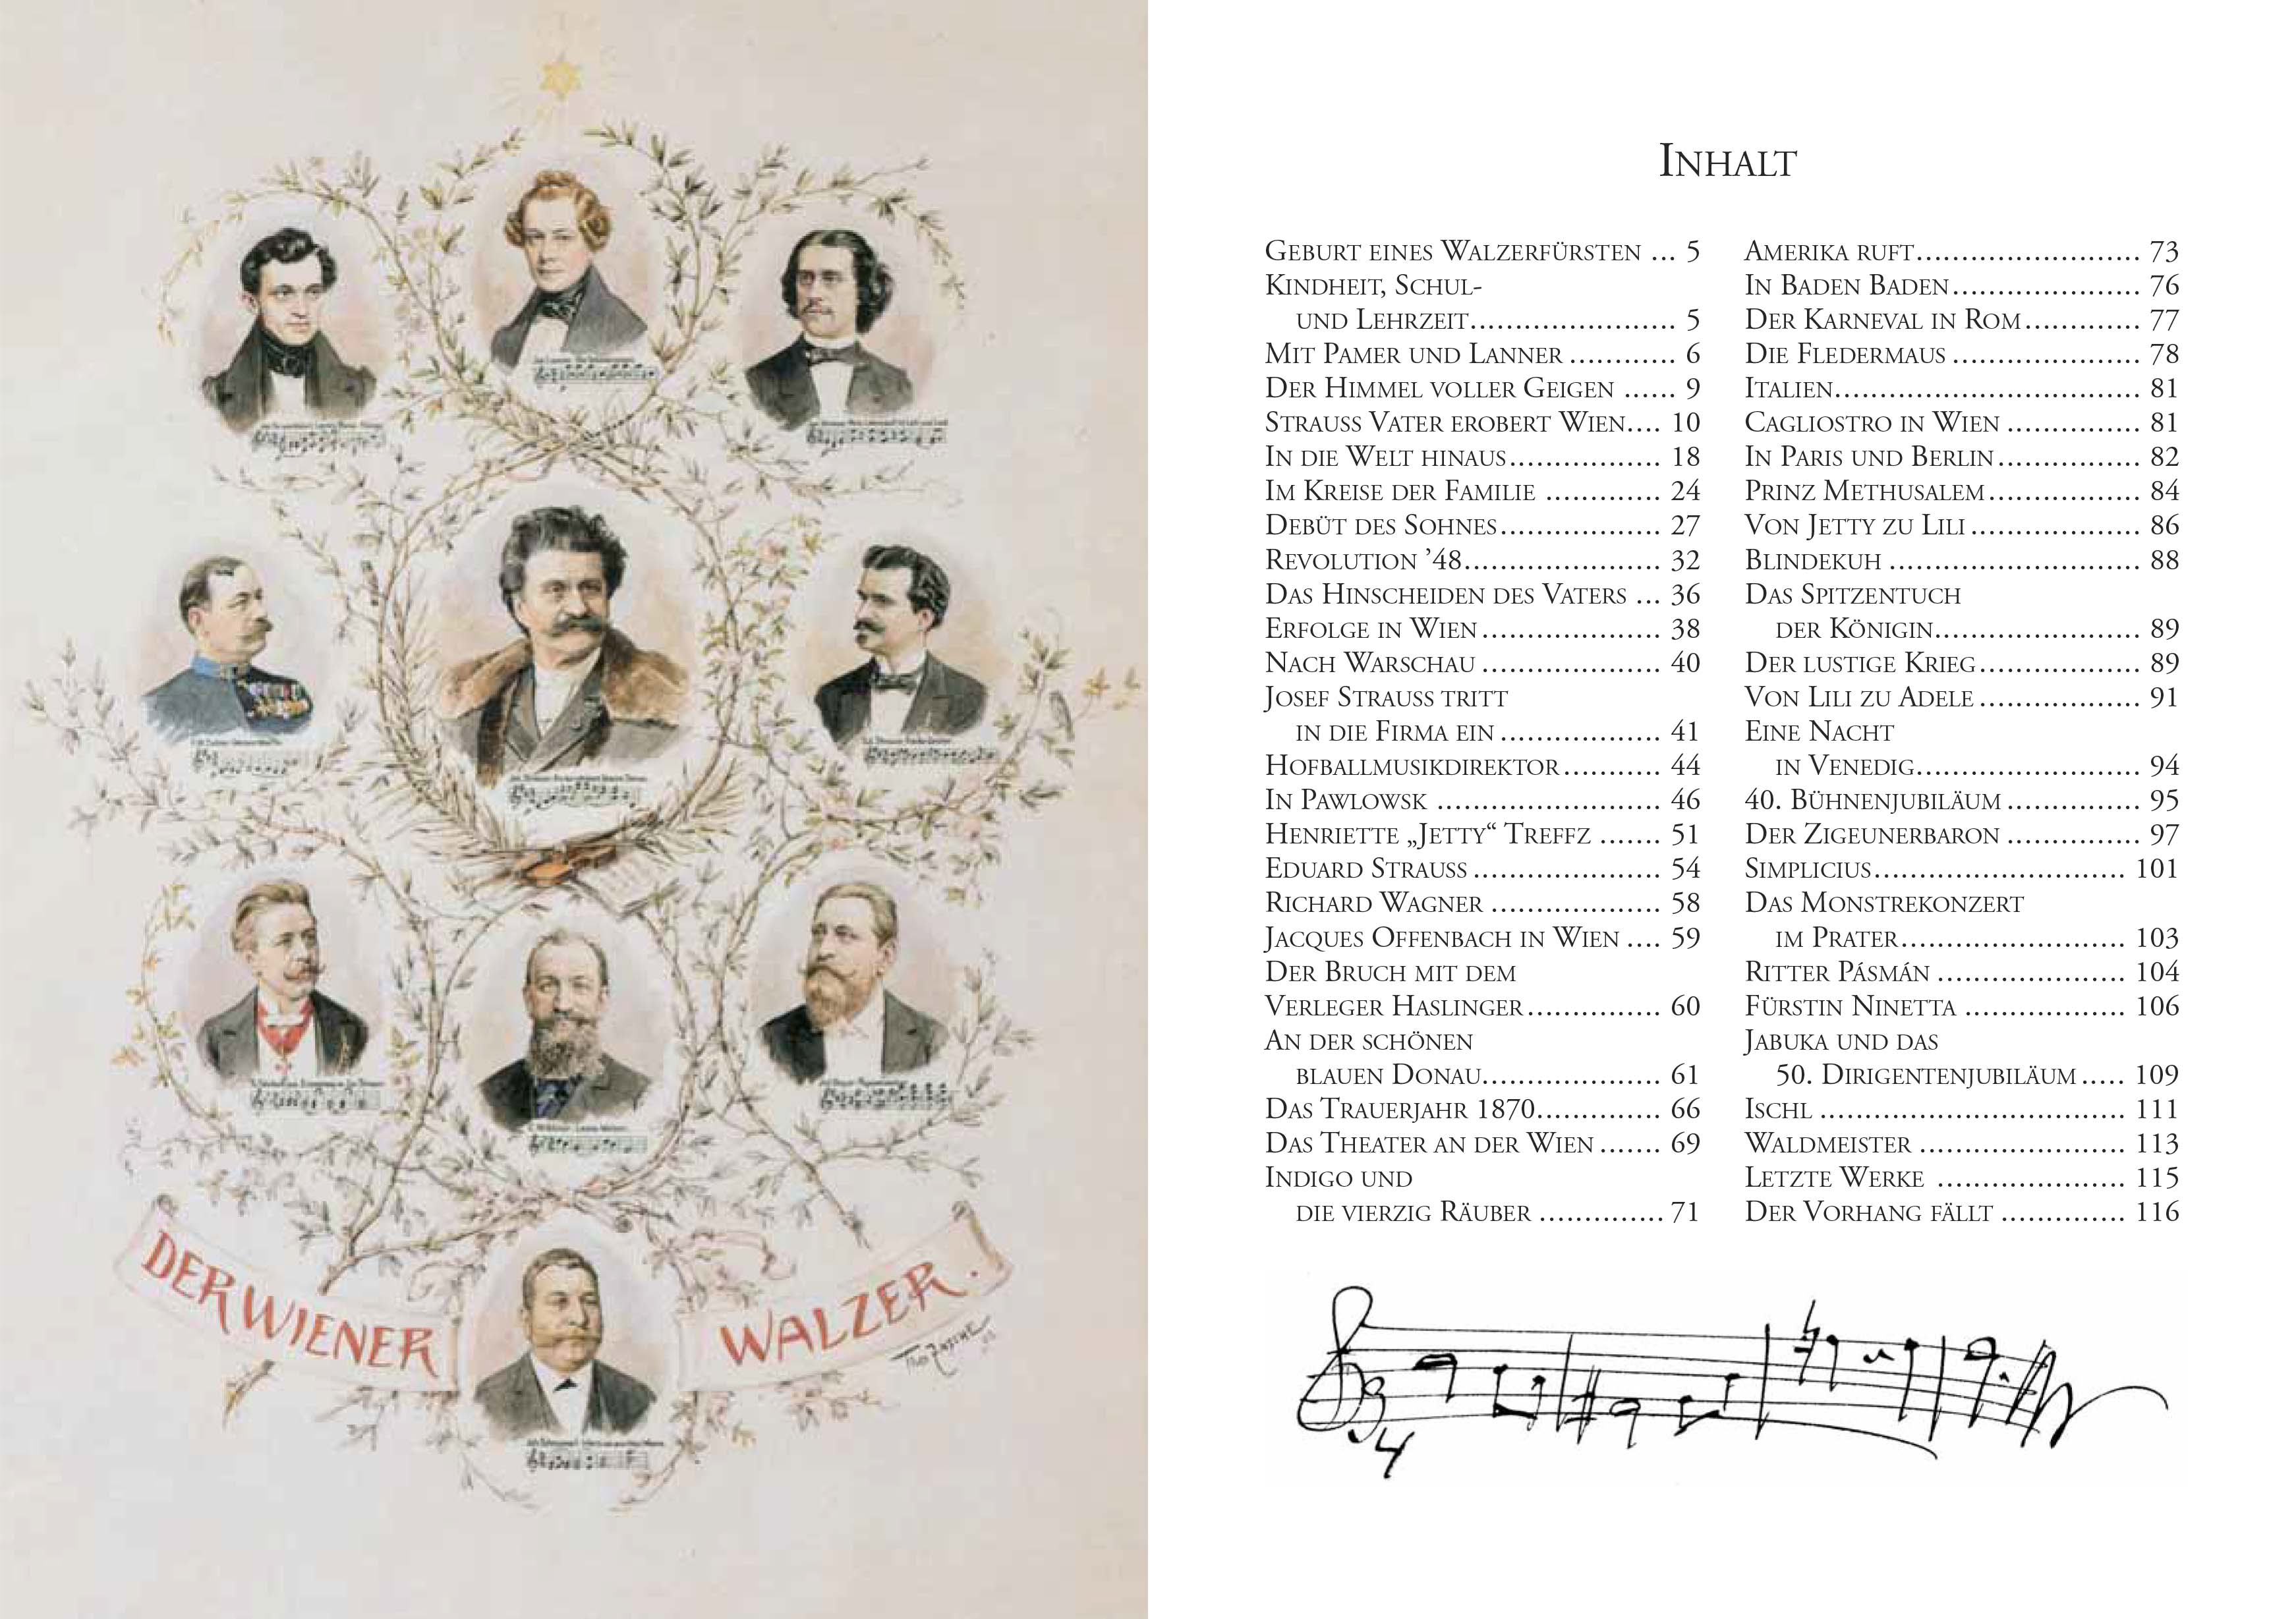 DER WIENER WALZER.
INHALT
GEBURT EINES WALZERFÜRSTEN ... 5
KINDHEIT, SCHUL-
UND LEHRZEIT....................... 5
MIT PAMER UND LANNER ............ 6
DER HIMMEL VOLLER GEIGEN ...... 9
STRAUSS VATER EROBERT WIEN.... 10
IN DIE WELT HINAUS................. 18
IM KREISE DER FAMILIE ............. 24
DEBÜT DES SOHNES.................. 27
REVOLUTION ’48...................... 32
DAS HINSCHEIDEN DES VATERS ... 36
ERFOLGE IN WIEN.................... 38
NACH WARSCHAU .................... 40
JOSEF STRAUSS TRITT
IN DIE FIRMA EIN .................. 41
HOFBALLMUSIKDIREKTOR........... 44
IN PAWLOWSK ......................... 46
HENRIETTE „JETTY“ TREFFZ ....... 51
EDUARD STRAUSS ..................... 54
RICHARD WAGNER ................... 58
JACQUES OFFENBACH IN WIEN .... 59
DER BRUCH MIT DEM
VERLEGER HASLINGER............... 60
AN DER SCHÖNEN
BLAUEN DONAU.................... 61
DAS TRAUERJAHR 1870.............. 66
DAS THEATER AN DER WIEN ....... 69
INDIGO UND
DIE VIERZIG RÄUBER .............. 71
AMERIKA RUFT......................... 73
IN BADEN BADEN..................... 76
DER KARNEVAL IN ROM............. 77
DIE FLEDERMAUS ..................... 78
ITALIEN.................................. 81
CAGLIOSTRO IN WIEN ............... 81
IN PARIS UND BERLIN................ 82
PRINZ METHUSALEM................. 84
VON JETTY ZU LILI ................... 86
BLINDEKUH ............................ 88
DAS SPITZENTUCH
DER KÖNIGIN....................... 89
DER LUSTIGE KRIEG.................. 89
VON LILI ZU ADELE .................. 91
EINE NACHT
IN VENEDIG......................... 94
40. BÜHNENJUBILÄUM ............... 95
DER ZIGEUNERBARON ............... 97
SIMPLICIUS............................ 101
DAS MONSTREKONZERT
IM PRATER......................... 103
RITTER PÁSMÁN ..................... 104
FÜRSTIN NINETTA .................. 106
JABUKA UND DAS
50. DIRIGENTENJUBILÄUM ..... 109
ISCHL .................................. 111
WALDMEISTER ....................... 113
LETZTE WERKE ..................... 115
DER VORHANG FÄLLT .............. 116